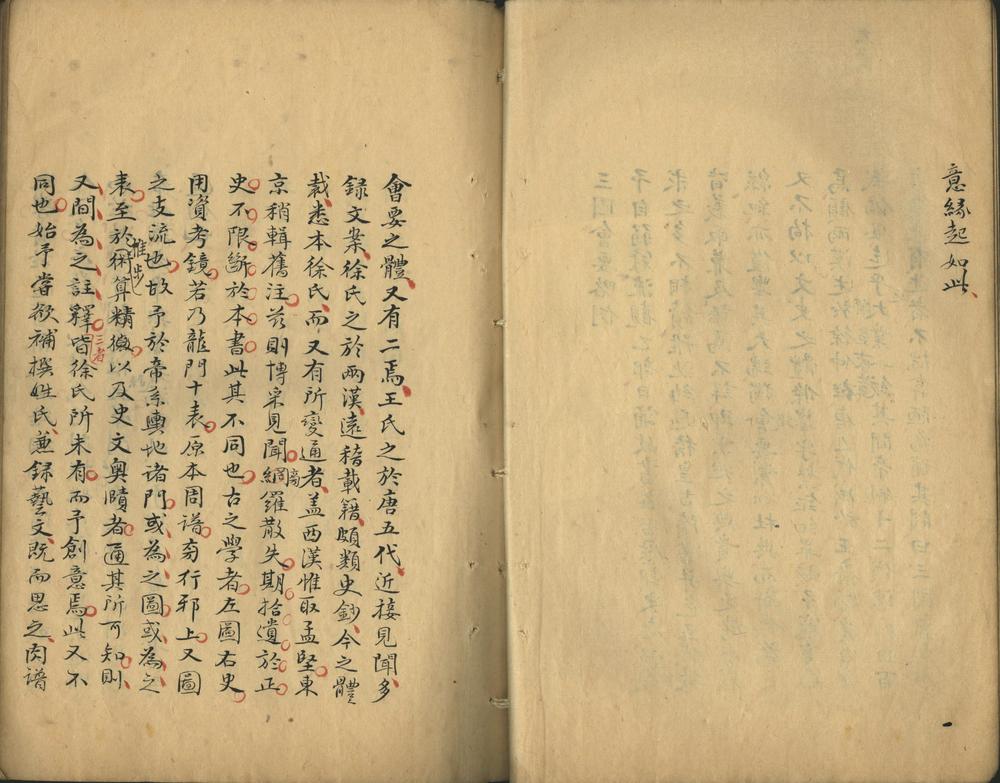 意緣起如此
會要之體又有二焉王氏之於唐五代近接見聞多
録文案徐氏之於兩漢遠稽載籍頗類史鈔今之體
裁悉本徐氏而又有所變通者盖西漢惟取孟堅東
京稍輯舊注兹則博采見聞網羅散失期拾遺於正
史不限斷於本書此其不同也古之學者左圖右史
用資考鏡若乃龍門十表原本周譜旁行邪上又圖
之支流也故予於帝系輿地诸門或為之圖或為之
表至於推步術算精微以及史文奥賾者通其所可知則
又間為之註釋三者皆徐氏所未有而予創意焉此又不
同也始予嘗欲補撰姓氏兼録藝文既而思之肉譜